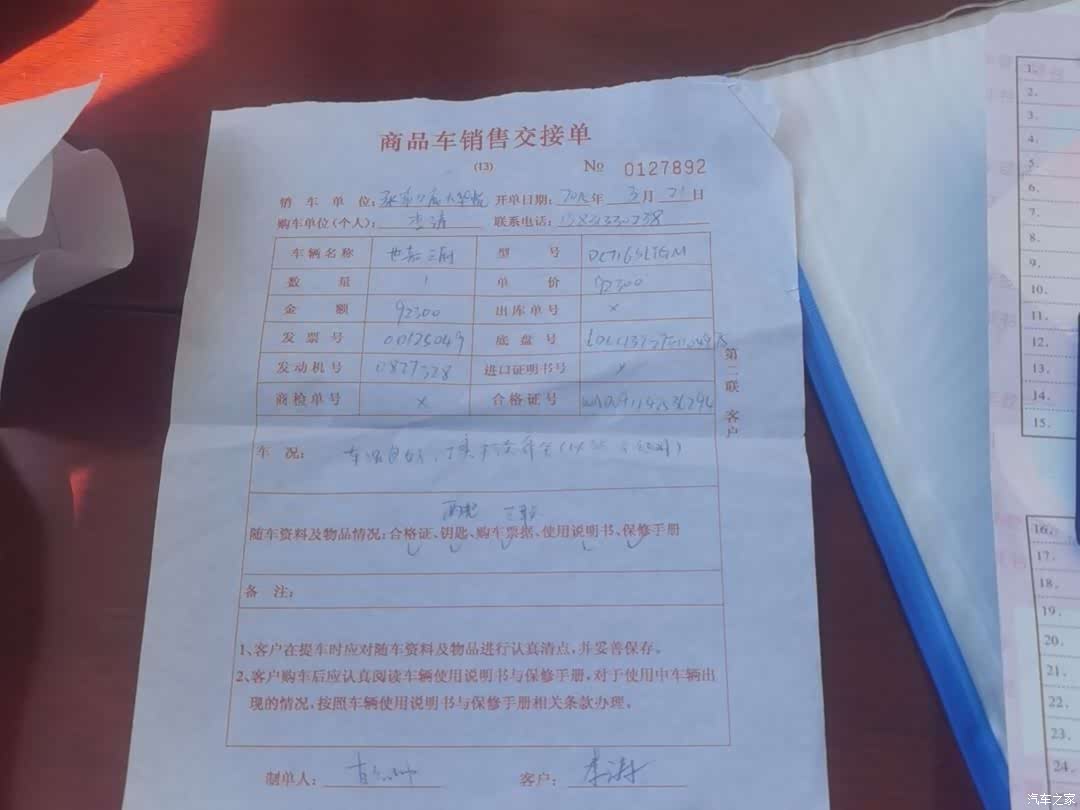 商品车销售交接单
(13) № 0127892
销车单位: 开单日期: 年 3月 21日
购车单位(个人): 李涛 联系电话:
车辆名称 世嘉三厢 型号
数量 1 单价 92300
金额 92300 出库单号 ×
发票号 00125049 底盘号
发动机号 0827328 进口证明书号 ×
商检单号 × 合格证号
第二联 客户
车况:
两把
随车资料及物品情况:合格证、钥匙、购车票据、使用说明书、保修手册
备注:
1、客户在提车时应对随车资料及物品进行认真清点,并妥善保存。
2、客户购车后应认真阅读车辆使用说明书与保修手册,对于使用中车辆出
现的情况,按照车辆使用说明书与保修手册相关条款办理。
制单人: 客户: 李涛
1.
2.
3.
4.
5.
6.
7.
8.
9.
10.
11.
12.
13.
14.
15.
16.
17.
18.
19.
20.
21.
22.
23.
24.
汽车之家